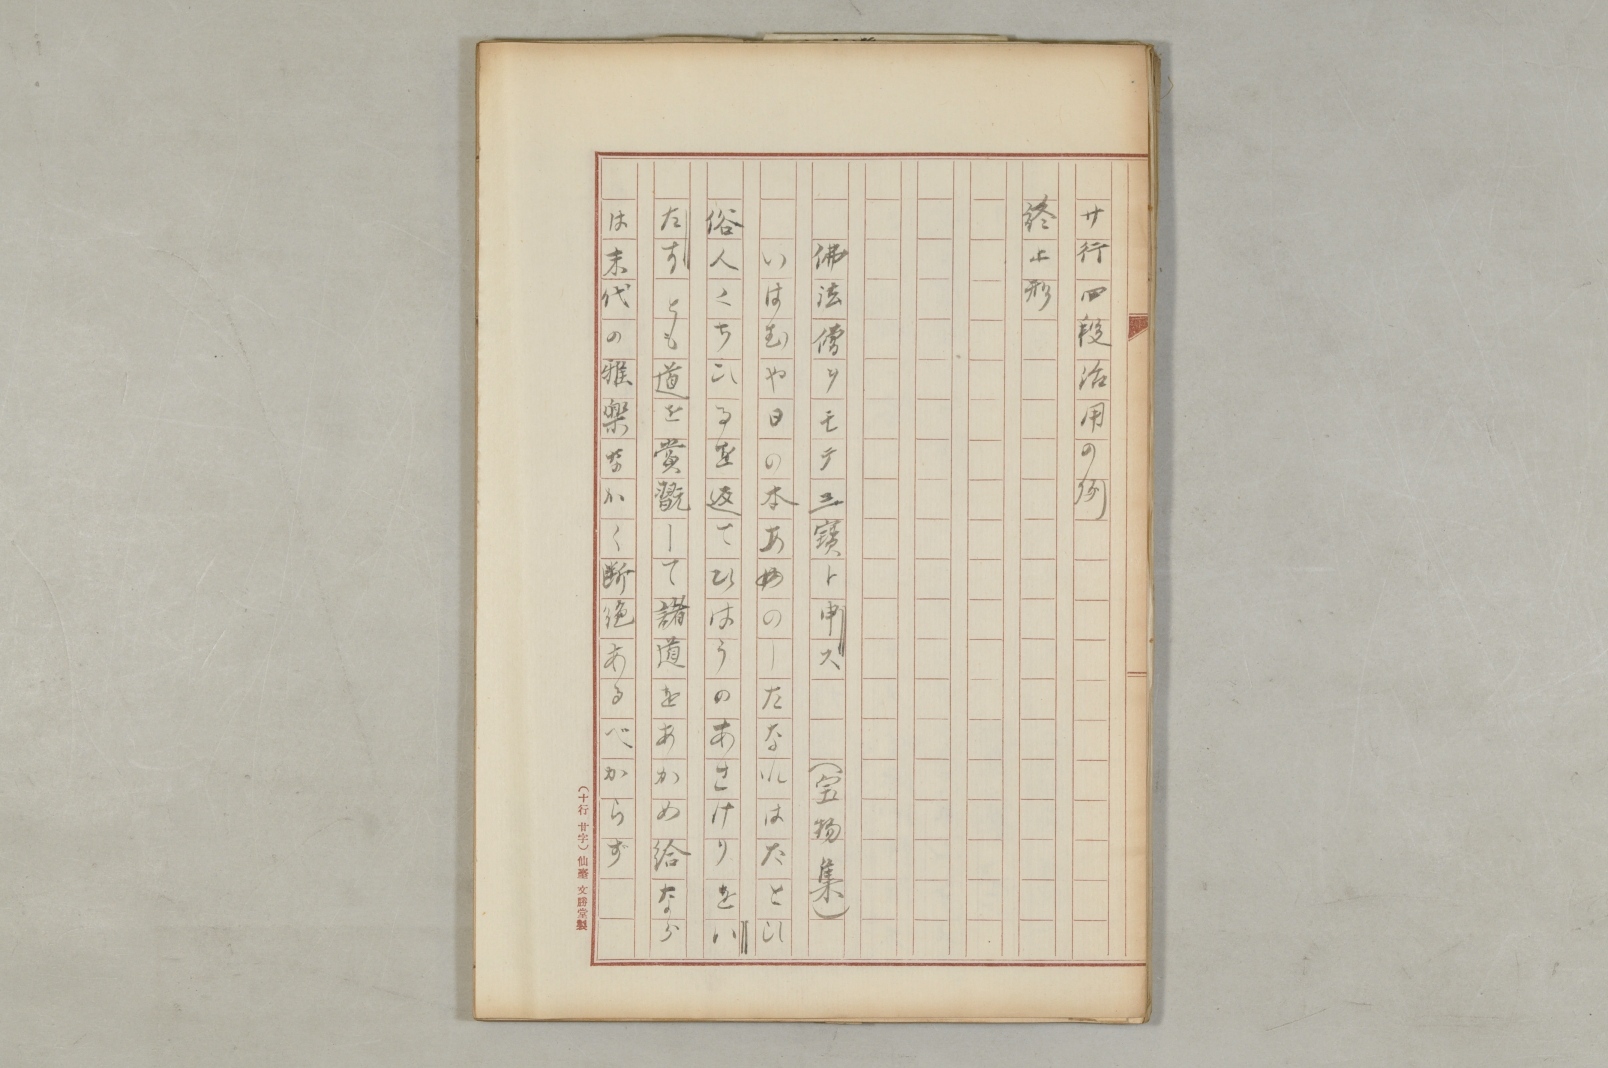 サ行四段活用の例
終止形
佛法僧ヲモテ三寶ト申ス（宝物集）
いはむや日の本あめのしたなれはたとひ
俗人くちひるを返てひはうのあさけりをい
たすとも道を賞翫して諸道をあかめ給なら
は末代の雅楽なかく断絶あるべからず
（十行 廿字）仙臺 文勝堂製